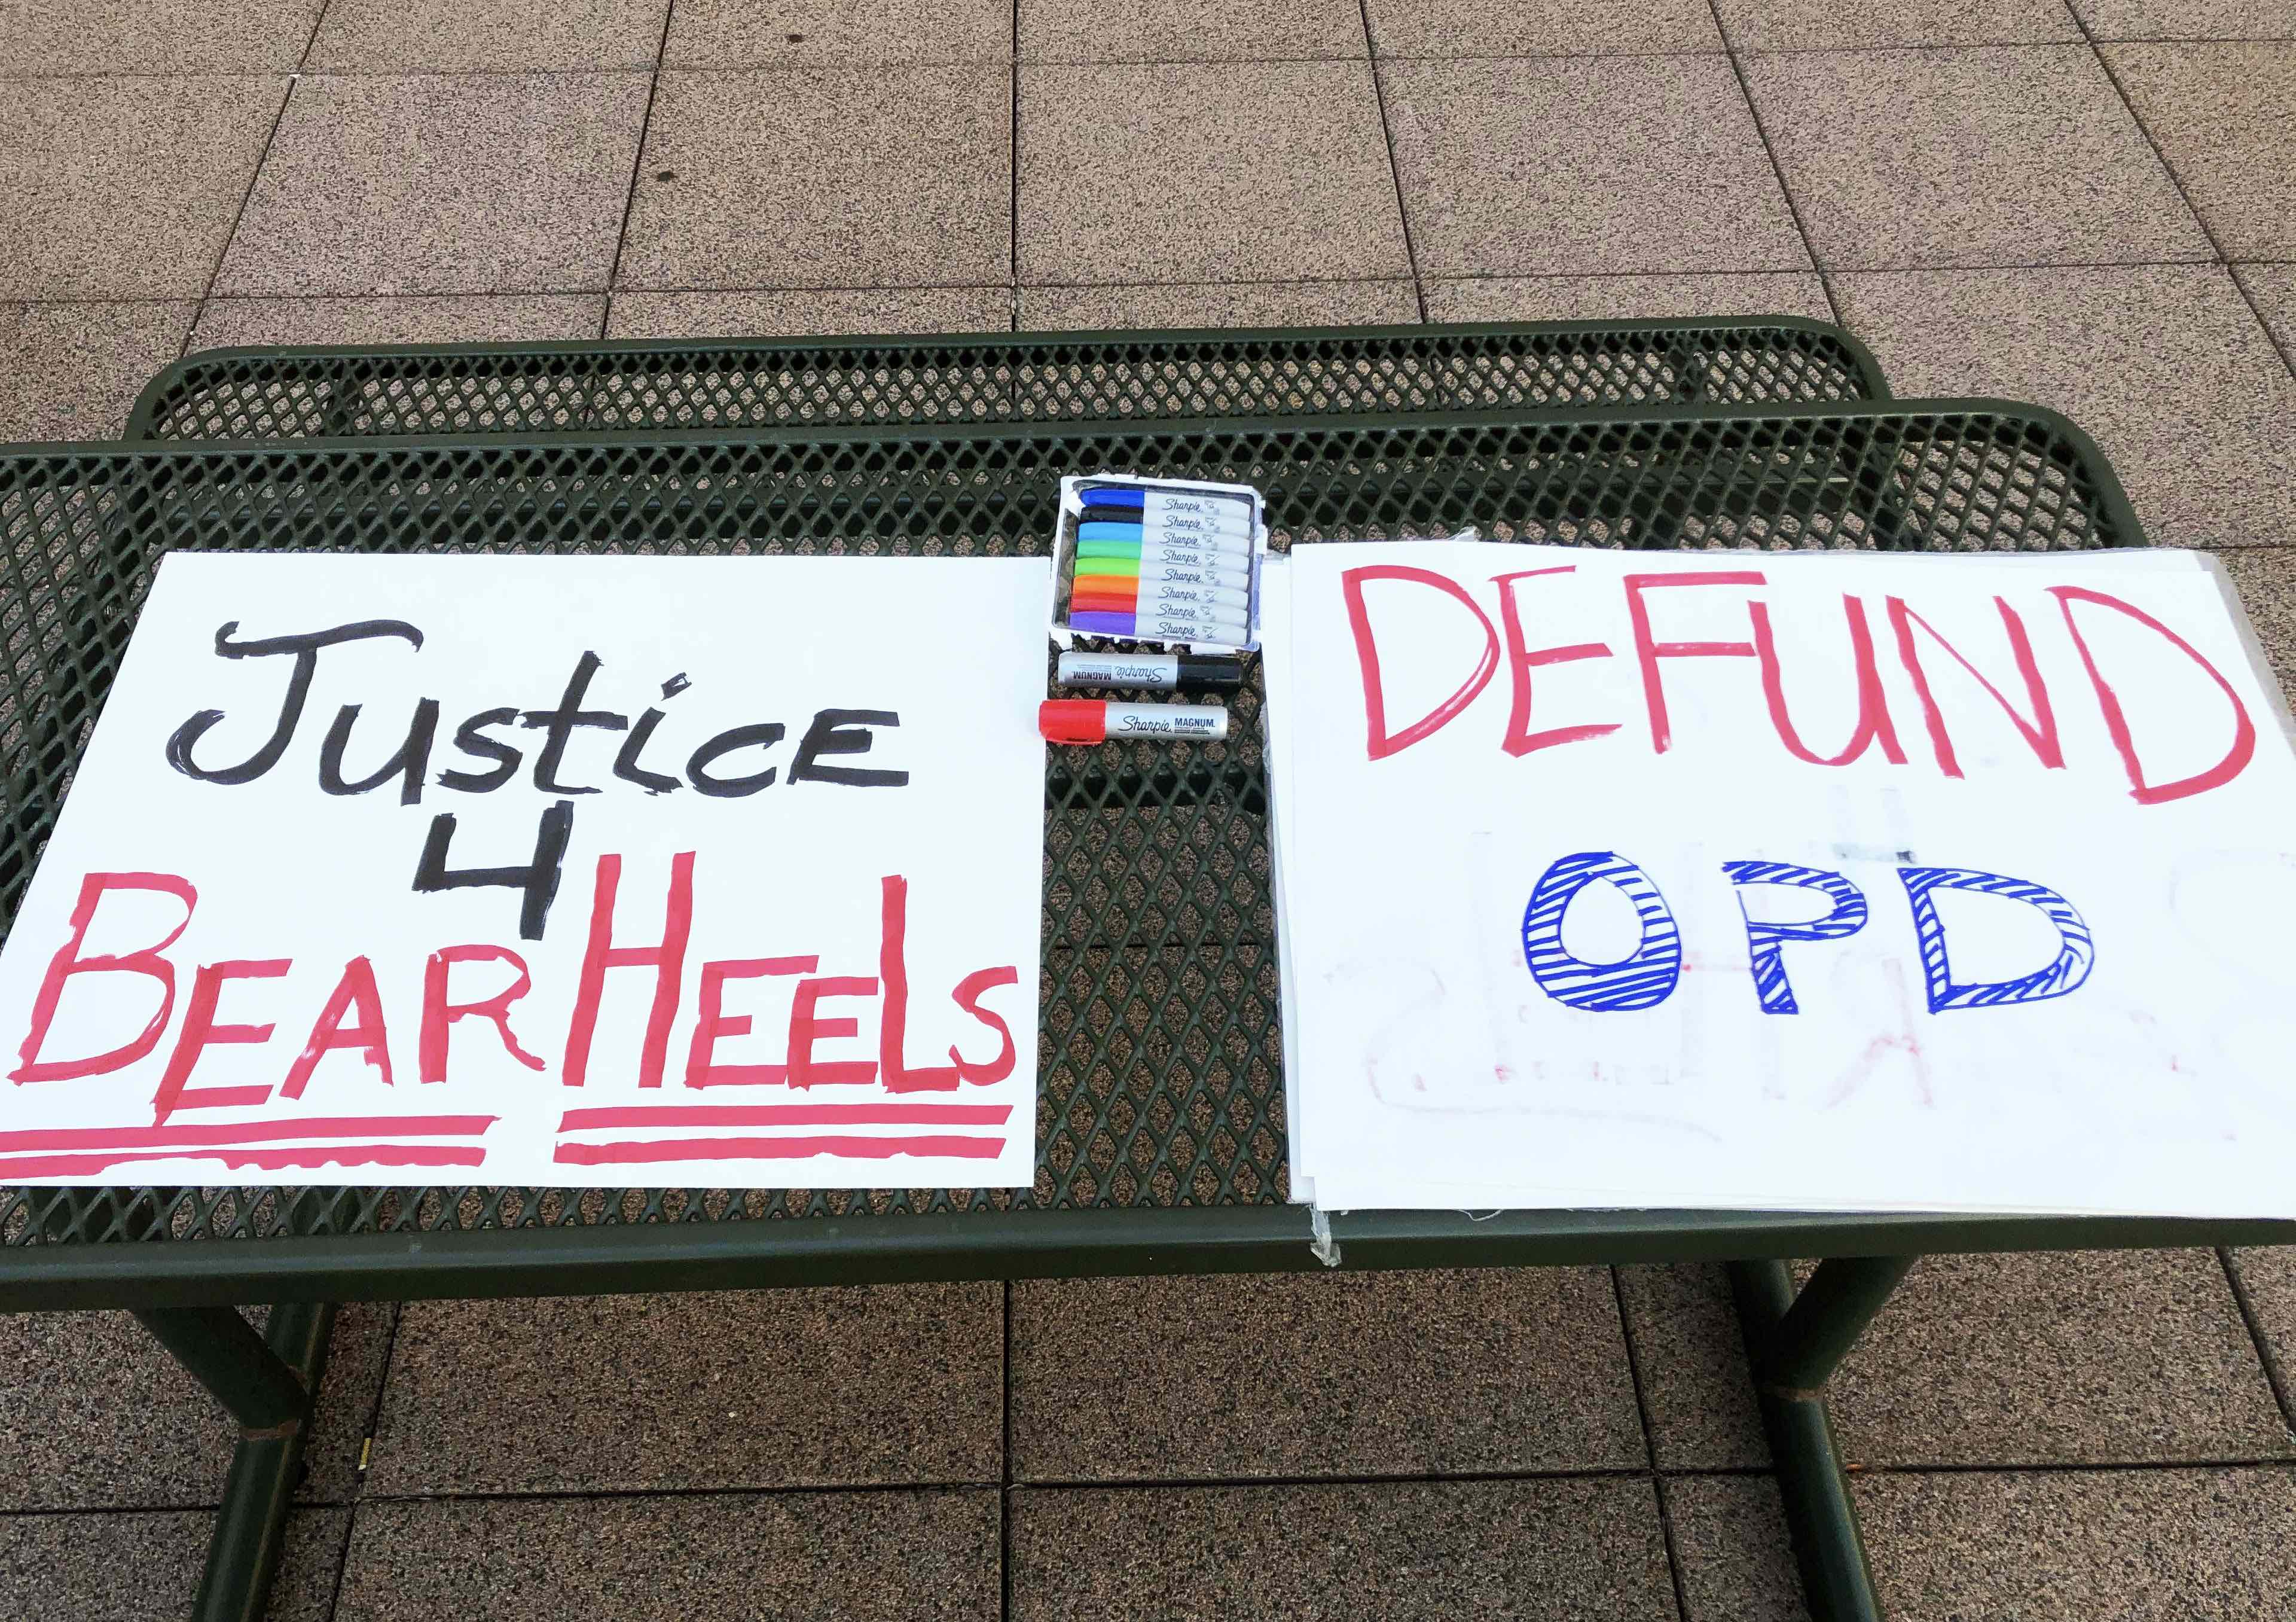 Justice
4
BEAR HEELS
Sharpie
Sharpie
Sharpie
Sharpie
Sharpie
Sharpie
Sharpie
Sharpie
Sharpie MAGNUM
Sharpie MAGNUM
DEFUND
OPD